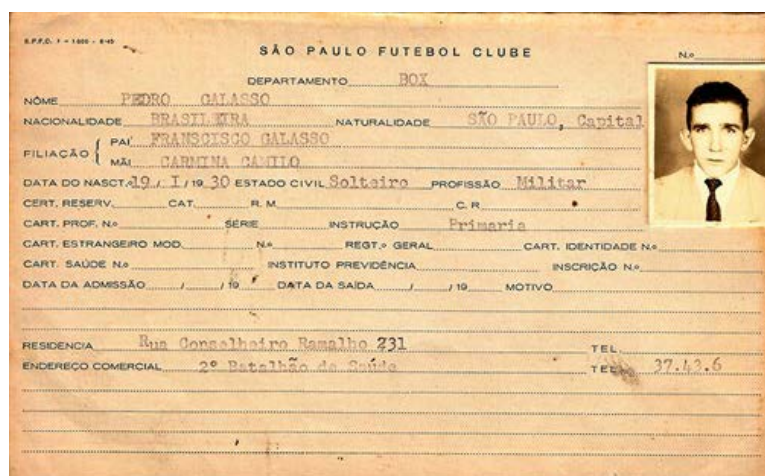 S.P.F.C. 1 - 1000 - 8-45
SÃO PAULO FUTEBOL CLUBE
N.o
DEPARTAMENTO BOX
NÔME PEDRO GALASSO
NACIONALIDADE BRASILEIRA NATURALIDADE SÃO PAULO, Capital
FILIAÇÃO { PAI FRANSCISCO GALASSO
MÃI CARMINA CAMILO
DATA DO NASCT.o 19 / I / 19 30 ESTADO CIVIL Solteiro PROFISSÃO Militar
CERT. RESERV. CAT. R. M. C. R
CART. PROF. N.o SÉRIE INSTRUÇÃO Primaria
CART. ESTRANGEIRO MOD. N.o REGT.o GERAL CART. IDENTIDADE N.o
CART. SAÚDE N.o INSTITUTO PREVIDÊNCIA INSCRIÇÃO N.o
DATA DA ADMISSÃO / / 19 DATA DA SAÍDA / / 19 MOTIVO
RESIDENCIA Rua Conselheiro Ramalho 231 TEL.
ENDEREÇO COMERCIAL 2º Batalhão de Saúde TEL. 37.43.6